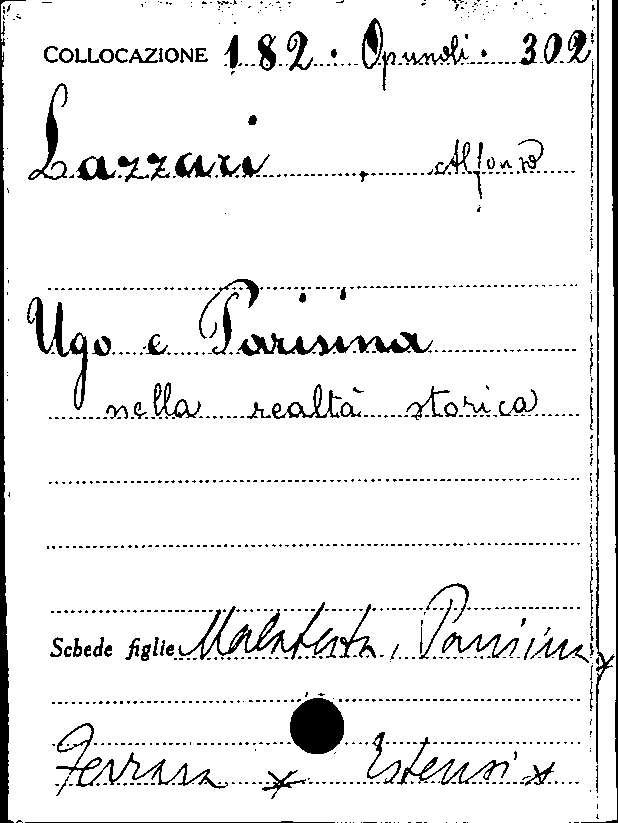 COLLOCAZIONE 182. Opuscoli. 302
Lazzari, Alfonso
Ugo e Parisina
nella realtà storica
Schede figlie Malatesta, Parisina *
Ferrara * Estensi *